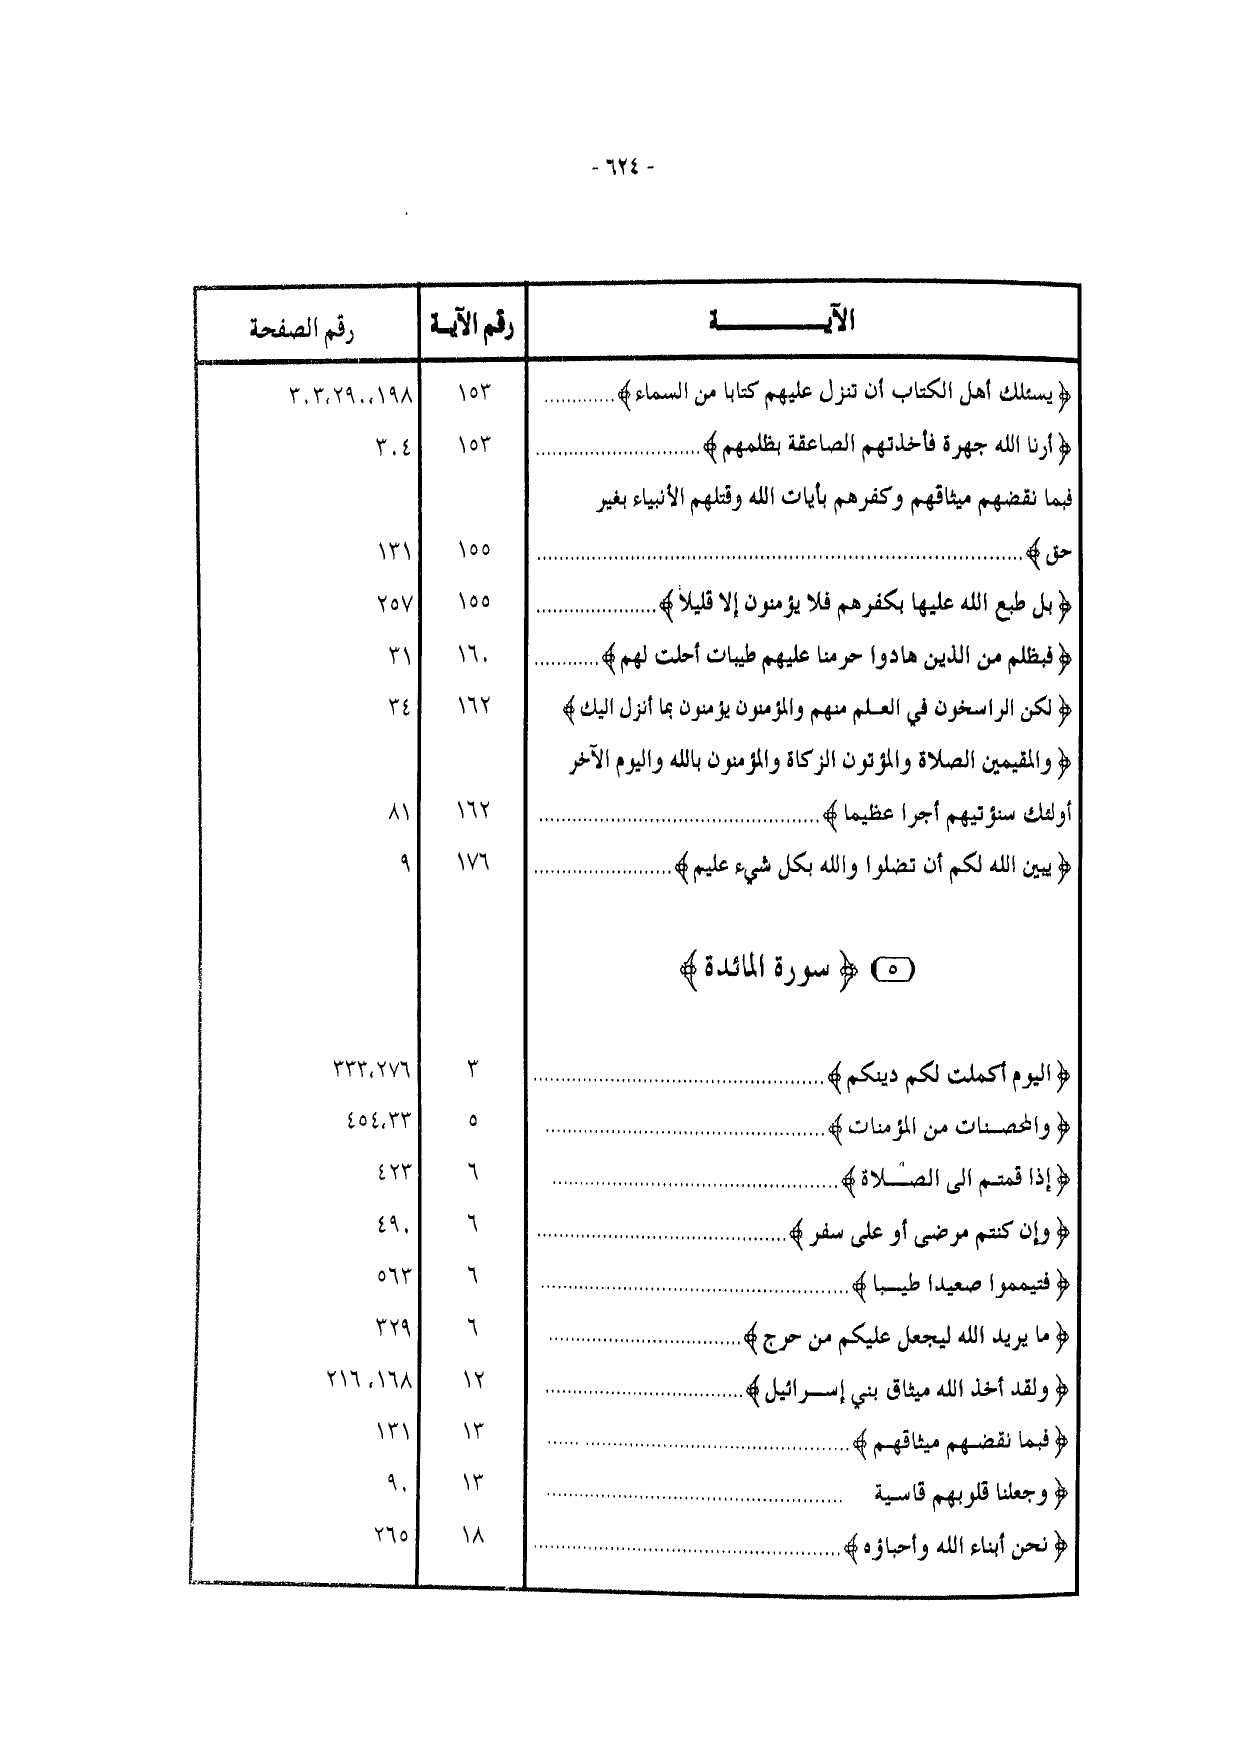 - ٦٢٤ -
الآيـــــــــة رقم الآيـة رقم الصفحة
﴿ يسئلك أهل الكتاب أن تنزل عليهم كتابا من السماء ﴾............ ١٥٣ ٣٠٣،٢٩٠،١٩٨
﴿ أرنا الله جهرة فأخذتهم الصاعقة بظلمهم ﴾............................ ١٥٣ ٣٠٤
فبما نقضهم ميثاقهم وكفرهم بأيات الله وقتلهم الأنبياء بغير
حق ﴾........................................................................ ١٥٥ ١٣١
﴿ بل طبع الله عليها بكفرهم فلا يؤمنون إلا قليلاً ﴾.................... ١٥٥ ٢٥٧
﴿ فبظلم من الذين هادوا حرمنا عليهم طيبات أحلت لهم ﴾........... ١٦٠ ٣١
﴿ لكن الراسخون في العـلم منهم والمؤمنون يؤمنون بما أنزل اليك ﴾ ١٦٢ ٣٤
﴿ والمقيمين الصلاة والمؤتون الزكاة والمؤمنون بالله واليوم الآخر
أولئك سنؤتيهم أجرا عظيما ﴾............................................ ١٦٢ ٨١
﴿ يبين الله لكم أن تضلوا والله بكل شيء عليم ﴾....................... ١٧٦ ٩
(٥) ﴿ سورة المائدة ﴾
﴿ اليوم أكملت لكم دينكم ﴾............................................. ٣ ٣٣٣،٢٧٦
﴿ والمحصـنات من المؤمنات ﴾........................................... ٥ ٤٥٤،٣٣
﴿ إذا قمتـم الى الصـــلاة ﴾............................................. ٦ ٤٢٣
﴿ وإن كنتم مرضى أو على سفر ﴾........................................ ٦ ٤٩٠
﴿ فتيمموا صعيدا طيـبا ﴾................................................ ٦ ٥٦٣
﴿ ما يريد الله ليجعل عليكم من حرج ﴾................................ ٦ ٣٢٩
﴿ ولقد أخذ الله ميثاق بني إســرائيل ﴾................................ ١٢ ٢١٦،١٦٨
﴿ فبما نقضـهم ميثاقهـم ﴾................................................ ١٣ ١٣١
﴿ وجعلنا قلوبهم قاسـية ................................................ ١٣ ٩٠
﴿ نحن أبناء الله وأحباؤه ﴾................................................ ١٨ ٢٦٥